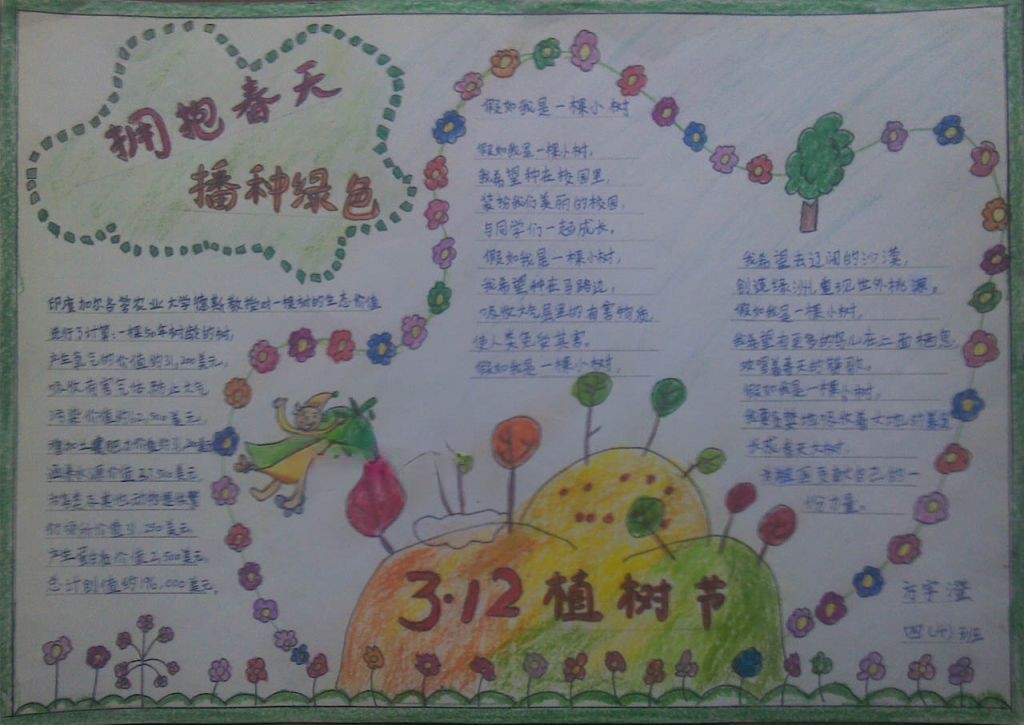 拥抱春天
播种绿色
印度加尔各答农业大学德斯教授对一棵树的生态价值
进行了计算:一棵50年树龄的树,
产生氧气的价值约31,200美元,
吸收有害气体,防止大气
污染价值约62,500美元,
增加土壤肥力价值约31,200美元
涵养水源价值37,500美元,
为鸟类及其他动物提供繁
衍场所价值31,250美元,
产生蛋白质价值2,500美元,
总计创值约196,000美元。
假如我是一棵小树
假如我是一棵小树,
我希望种在校园里,
装扮我们美丽的校园,
与同学们一起成长。
假如我是一棵小树,
我希望种在马路边,
吸收大气层里的有害物质,
使人类免受其害。
假如我是一棵小树,
我希望去辽阔的沙漠,
创造绿洲,重现世外桃源。
假如我是一棵小树,
我希望有更多的鸟儿在上面栖息,
欢唱着春天的赞歌。
假如我是一棵小树,
长成参天大树,
为祖国贡献自己的一
份力量。
3·12植树节
方宇澄
四(4)班